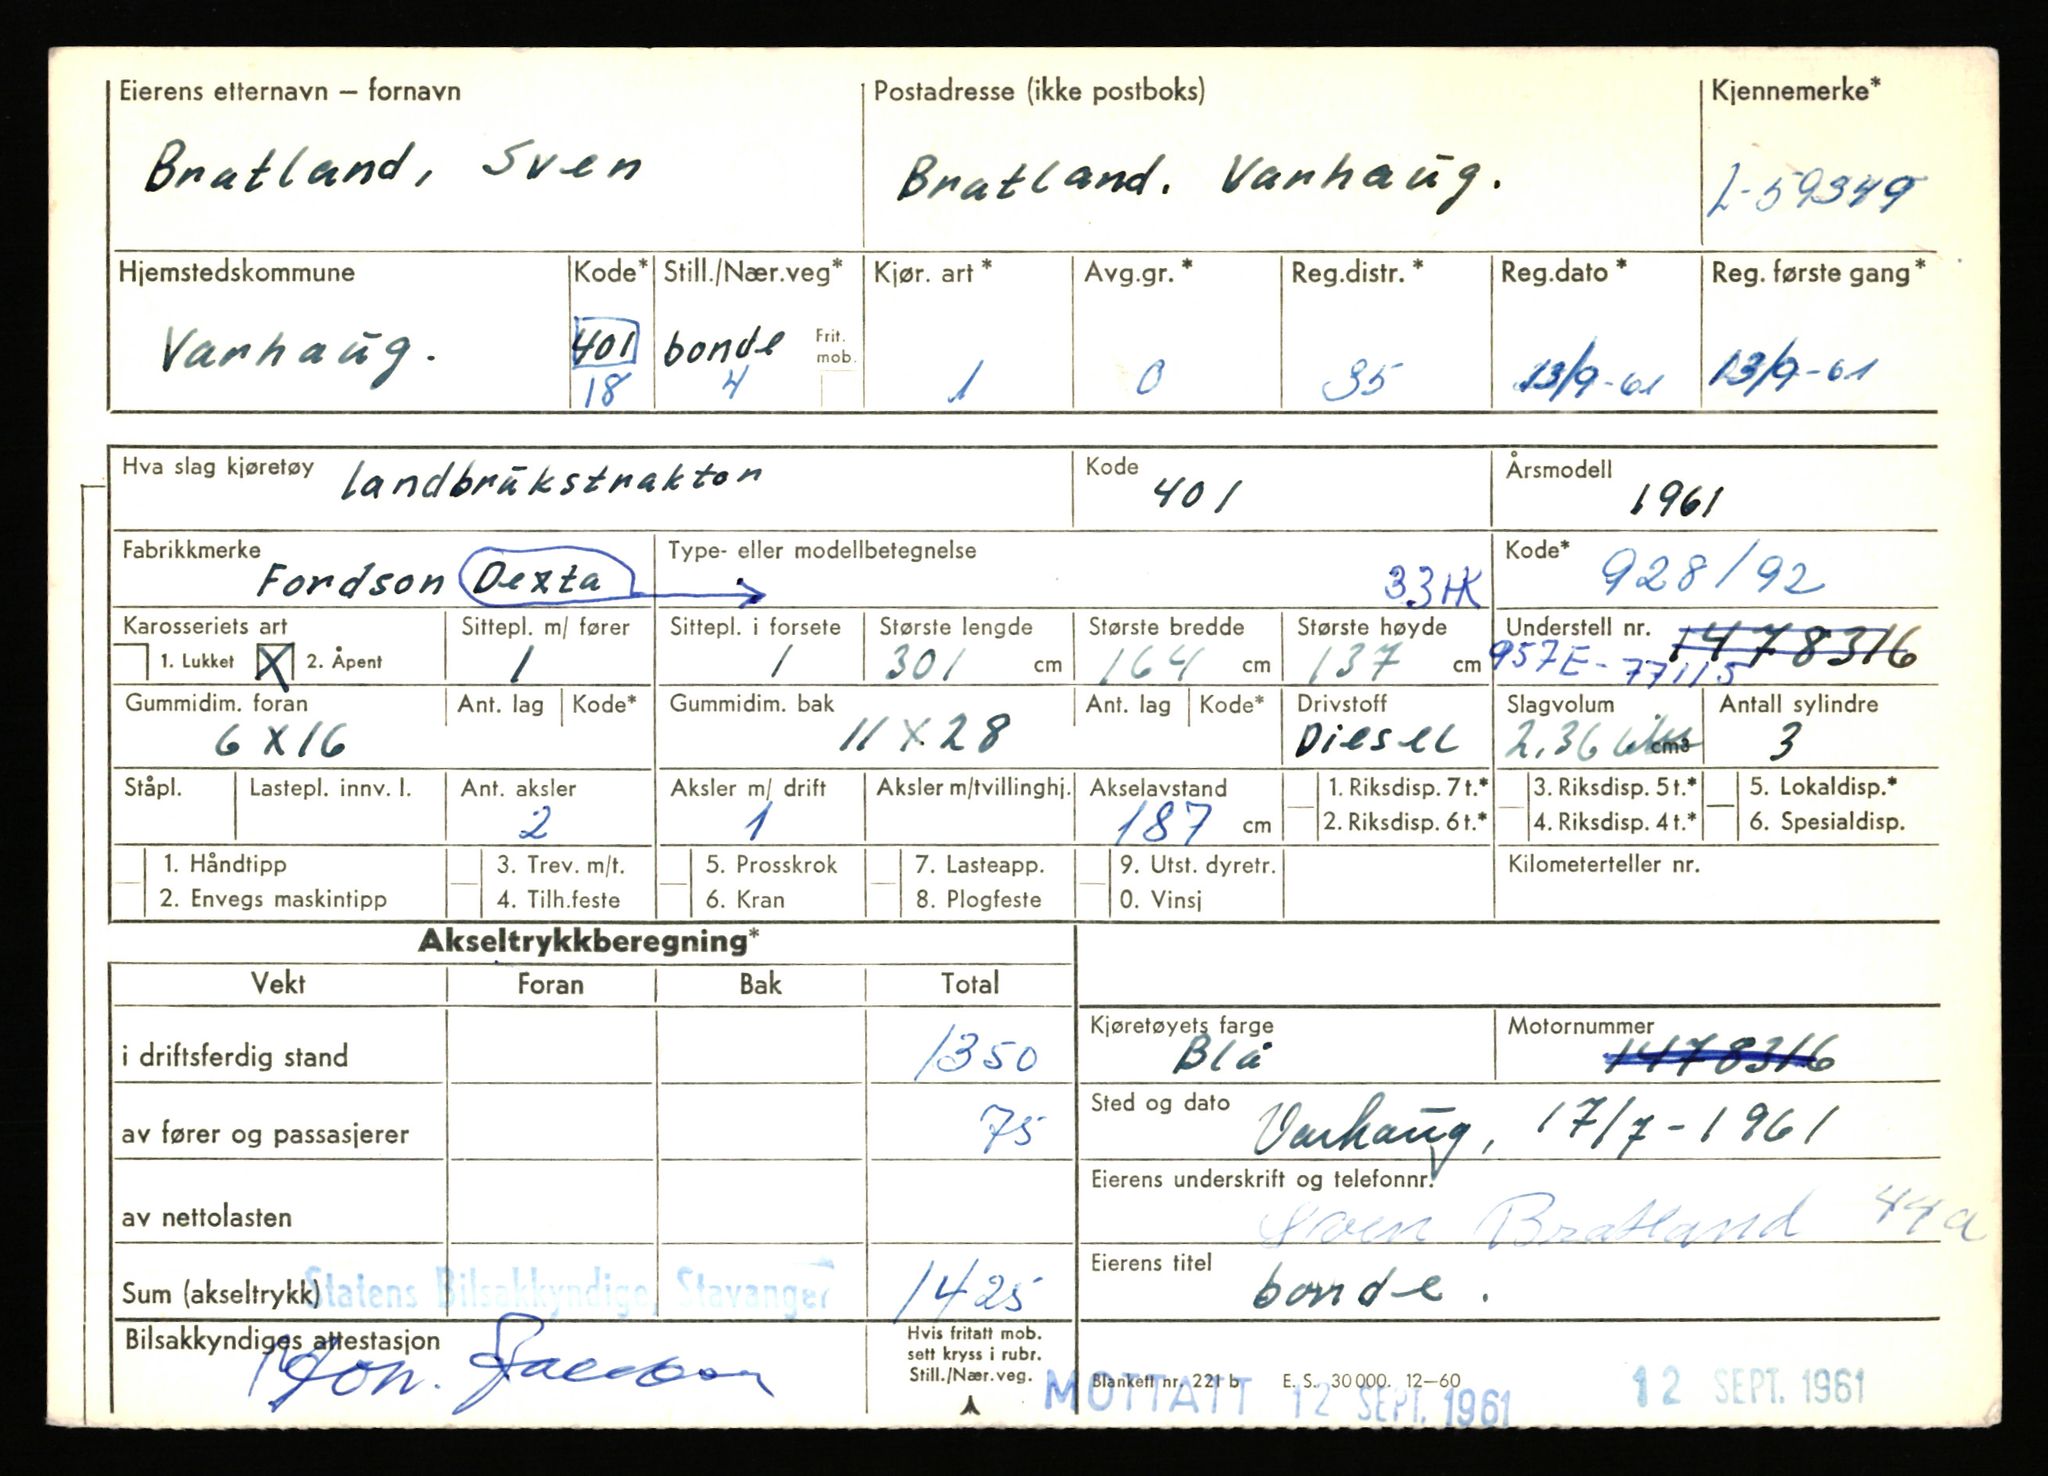 Eierens etternavn – fornavn Postadresse (ikke postboks) Kjennemerke*
Bratland, Sven Bratland. Varhaug. L-59349
Hjemstedskommune Kode* Still./Nær.veg* Kjør. art* Avg.gr.* Reg.distr.* Reg.dato* Reg. første gang*
Varhaug. 401 bonde Frit. mob.
18 4 1 0 35 13/9-61 13/9-61
Hva slag kjøretøy landbrukstraktor Kode 401 Årsmodell 1961
Fabrikkmerke Type- eller modellbetegnelse Kode*
Fordson Dexta 33 HK 928/92
Karosseriets art Sittepl. m/ fører Sittepl. i forsete Største lengde Største bredde Største høyde Understell nr. 1478316
1. Lukket X 2. Åpent 1 1 301 cm 164 cm 137 cm 957E-77115
Gummidim. foran Ant. lag Kode* Gummidim. bak Ant. lag Kode* Drivstoff Slagvolum Antall sylindre
6 x 16 11 x 28 Diesel 2,36 cm3 3
Ståpl. Lastepl. innv. l. Ant. aksler Aksler m/ drift Aksler m/tvillinghj. Akselavstand 1. Riksdisp. 7 t.* 3. Riksdisp. 5 t.* 5. Lokaldisp.*
2 1 187 cm 2. Riksdisp. 6 t.* 4. Riksdisp. 4 t.* 6. Spesialdisp.
1. Håndtipp 3. Trev. m/t. 5. Prosskrok 7. Lasteapp. 9. Utst. dyretr. Kilometerteller nr.
2. Envegs maskintipp 4. Tilh.feste 6. Kran 8. Plogfeste 0. Vinsj
Akseltrykkberegning*
Vekt Foran Bak Total
Kjøretøyets farge Motornummer
i driftsferdig stand 1350 Blå 1478316
Sted og dato Varhaug, 17/7-1961
av fører og passasjerer 75
Eierens underskrift og telefonnr.
av nettolasten Sven Bratland 44a
Eierens titel
Sum (akseltrykk) Statens Bilsakkyndige, Stavanger 1425 bonde.
Bilsakkyndiges attestasjon Hvis fritatt mob.
sett kryss i rubr.
Still./Nær.veg.
Blankett nr. 221 b E. S. 30 000. 12–60
MOTTATT 12 SEPT. 1961 12 SEPT. 1961